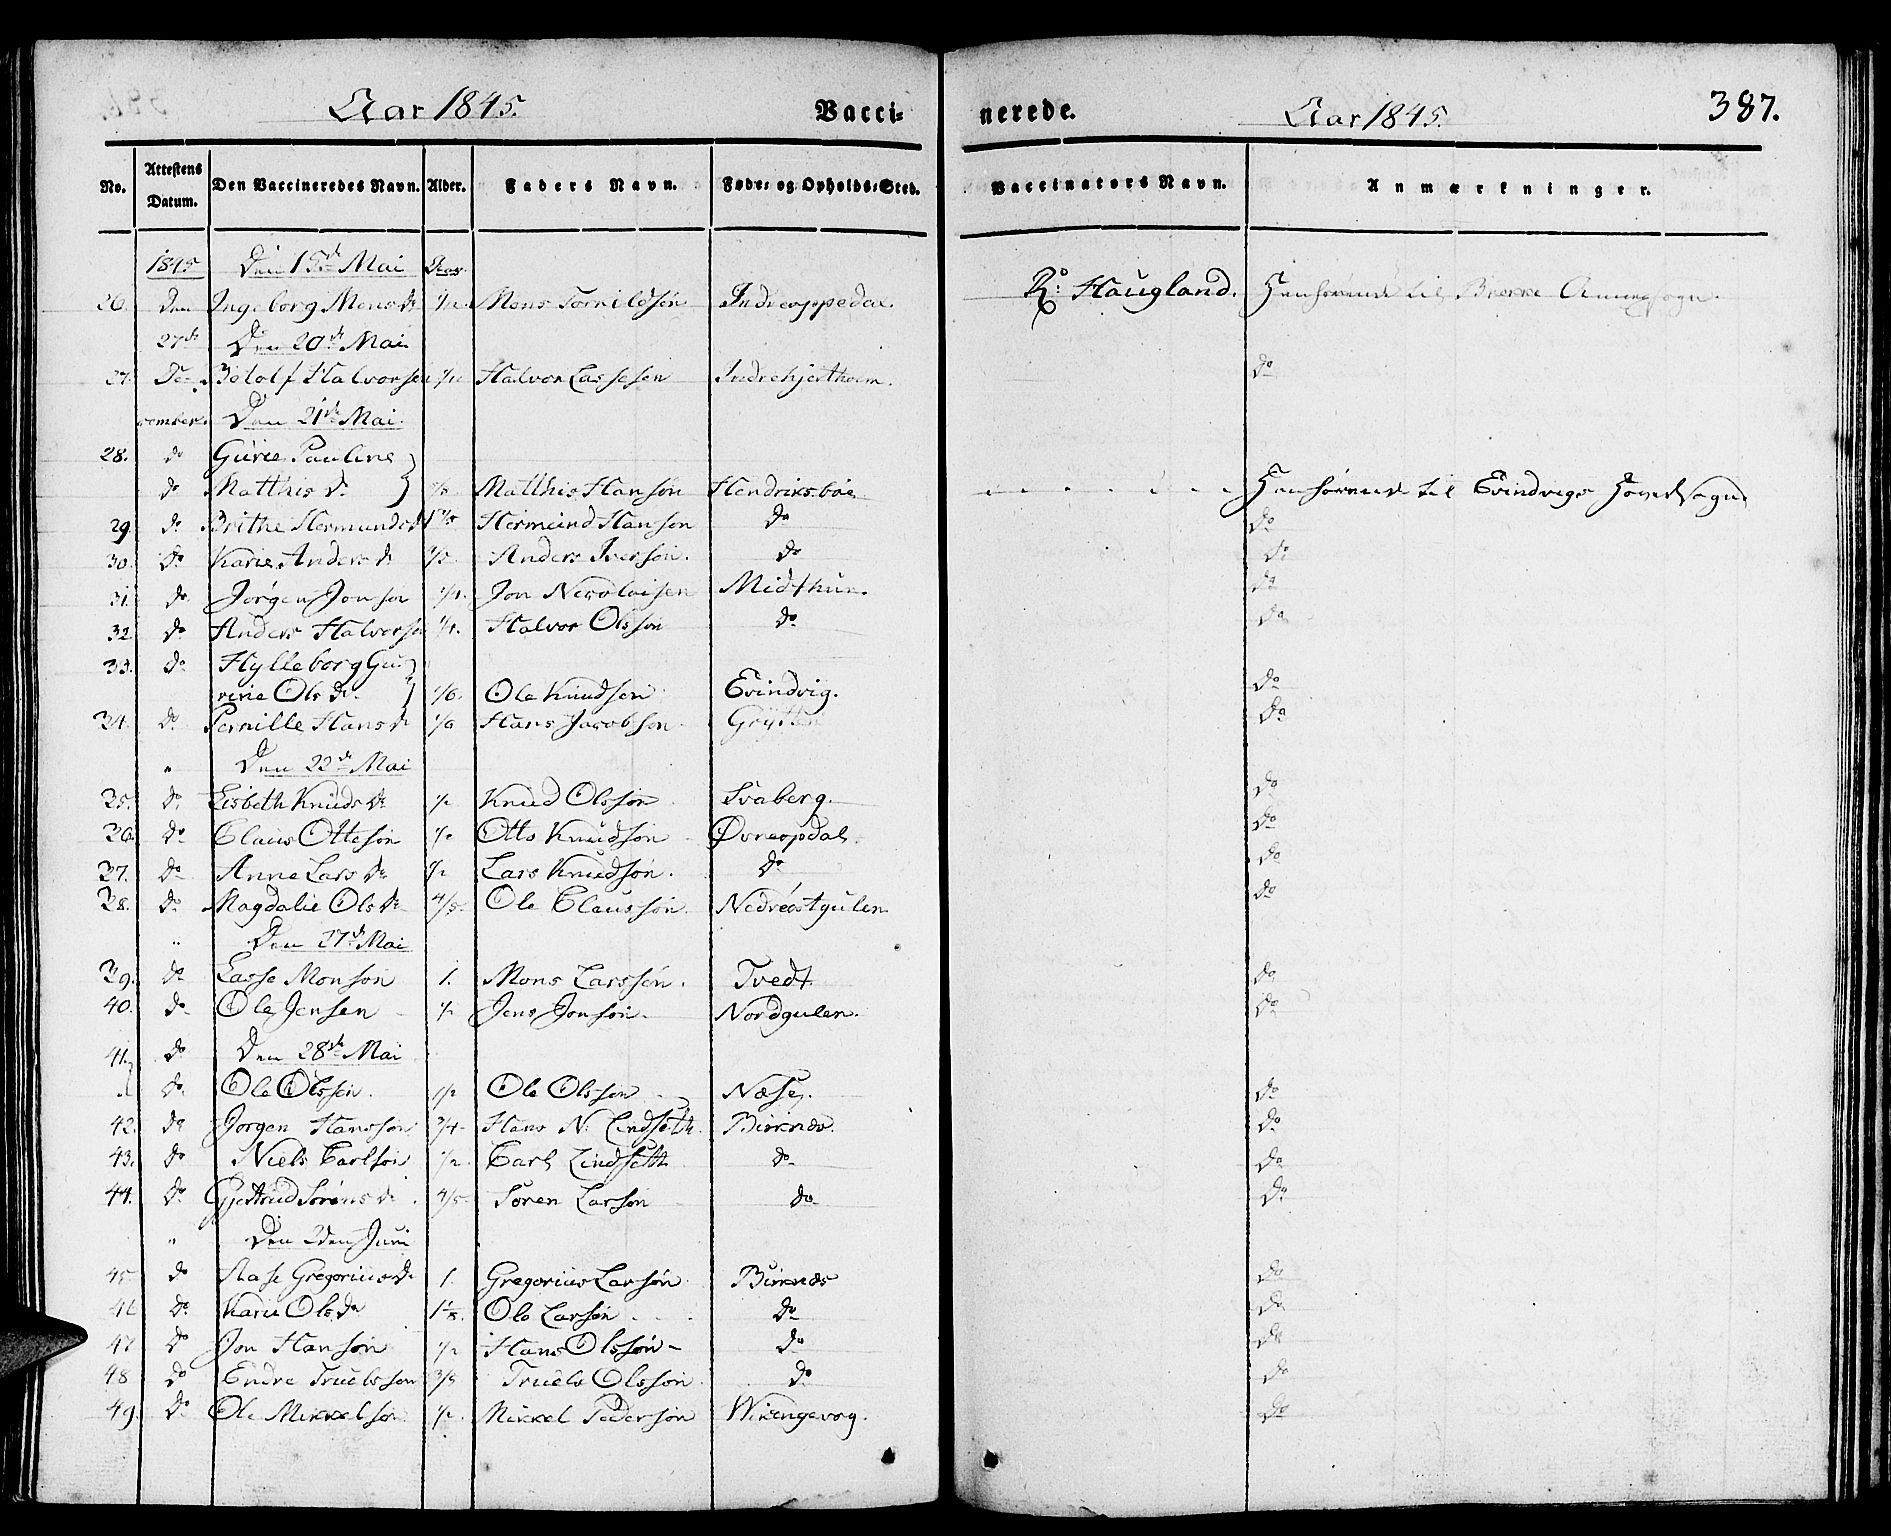 Aar 1845. Vacci- nerede. Aar 1845. 387.
No. Attestens Datum. Den Vaccineredes Navn. Alder. Faders Navn. Føde- og Opholds-Sted. Vaccinators Navn. Anmærkninger.
1845 Den 15de Mai Aar
26. den Ingeborg Monsdr Mons Tornildsøn Indreoppedal R: Haugland. Henhørende til Brekke Annexsogn.
27de Den 20de Mai
27. De- Botolf Halvorsen Halvor Lassesen Indrehjertholm. do
cember. Den 21de Mai.
28. do Gurie Pauline
do Matthisdr Matthis Hansøn Hendriksbøe Henhørende til Evindvigs Hovedsogn
29. do Brithe Hermundsdr Hermund Hanson do do
30. do Karie Andersdr Anders Iversøn. do do
31. do Jørgen Jonson 1/4. Jon Nicolaisen Midthun. do
32 do Anders Halvorso 1/4. Halvor Olsson do do
33. do Hylleborg Gu-
rine Olsdr 1/6. Ole Knudsen Evindvig. do
34. do Pernille Hansdr 1/6 Hans Jacobsøn Grytten do
" Den 22de Mai
35. do Lisbeth Knudsdr 1/2 Knud Olssøn Svaberg. do
36. do Claus Ottesøn 1/2 Otto Knudsøn Øvreopdal. do
37. do Anne Larsdr 1/2 Lars Knudsøn. do do
38. do Magdalie Olsdr 4/5. Ole Claussøn Nedreøstgulen do
" Den 27de Mai
39. do Lasse Monsøn 1. Mons Larssøn. Tvedt do
40. do Ole Jensen 1/2 Jens Jonsøn. Nordgulen. do
41. do Den 28de Mai
do Ole Olsson. 1/2 Ole Olsson Næse, do
42. do Jørgen Hansson 3/4 Hans N. Lindseth. Birknæs. do
43. do Niels Carlsøn 1/2 Carl Lindseth do do
44. do Gjertrud Sørensdr. 4/5 Søren Larsøn do do
" Den 2den Juni
45 do Aase Gregoriusdr 1. Gregorius Larsøn Birknæs do
46 do Karie Olsdr Ole Larsøn do do
47 do Jon Hansøn 1/2 Hans Olssøn do do
48 do Endre Truelsson Truels Olsson do do
49. do Ole Mikkelsøn 1/2. Mikkel Pedersøn Wikengevog. do